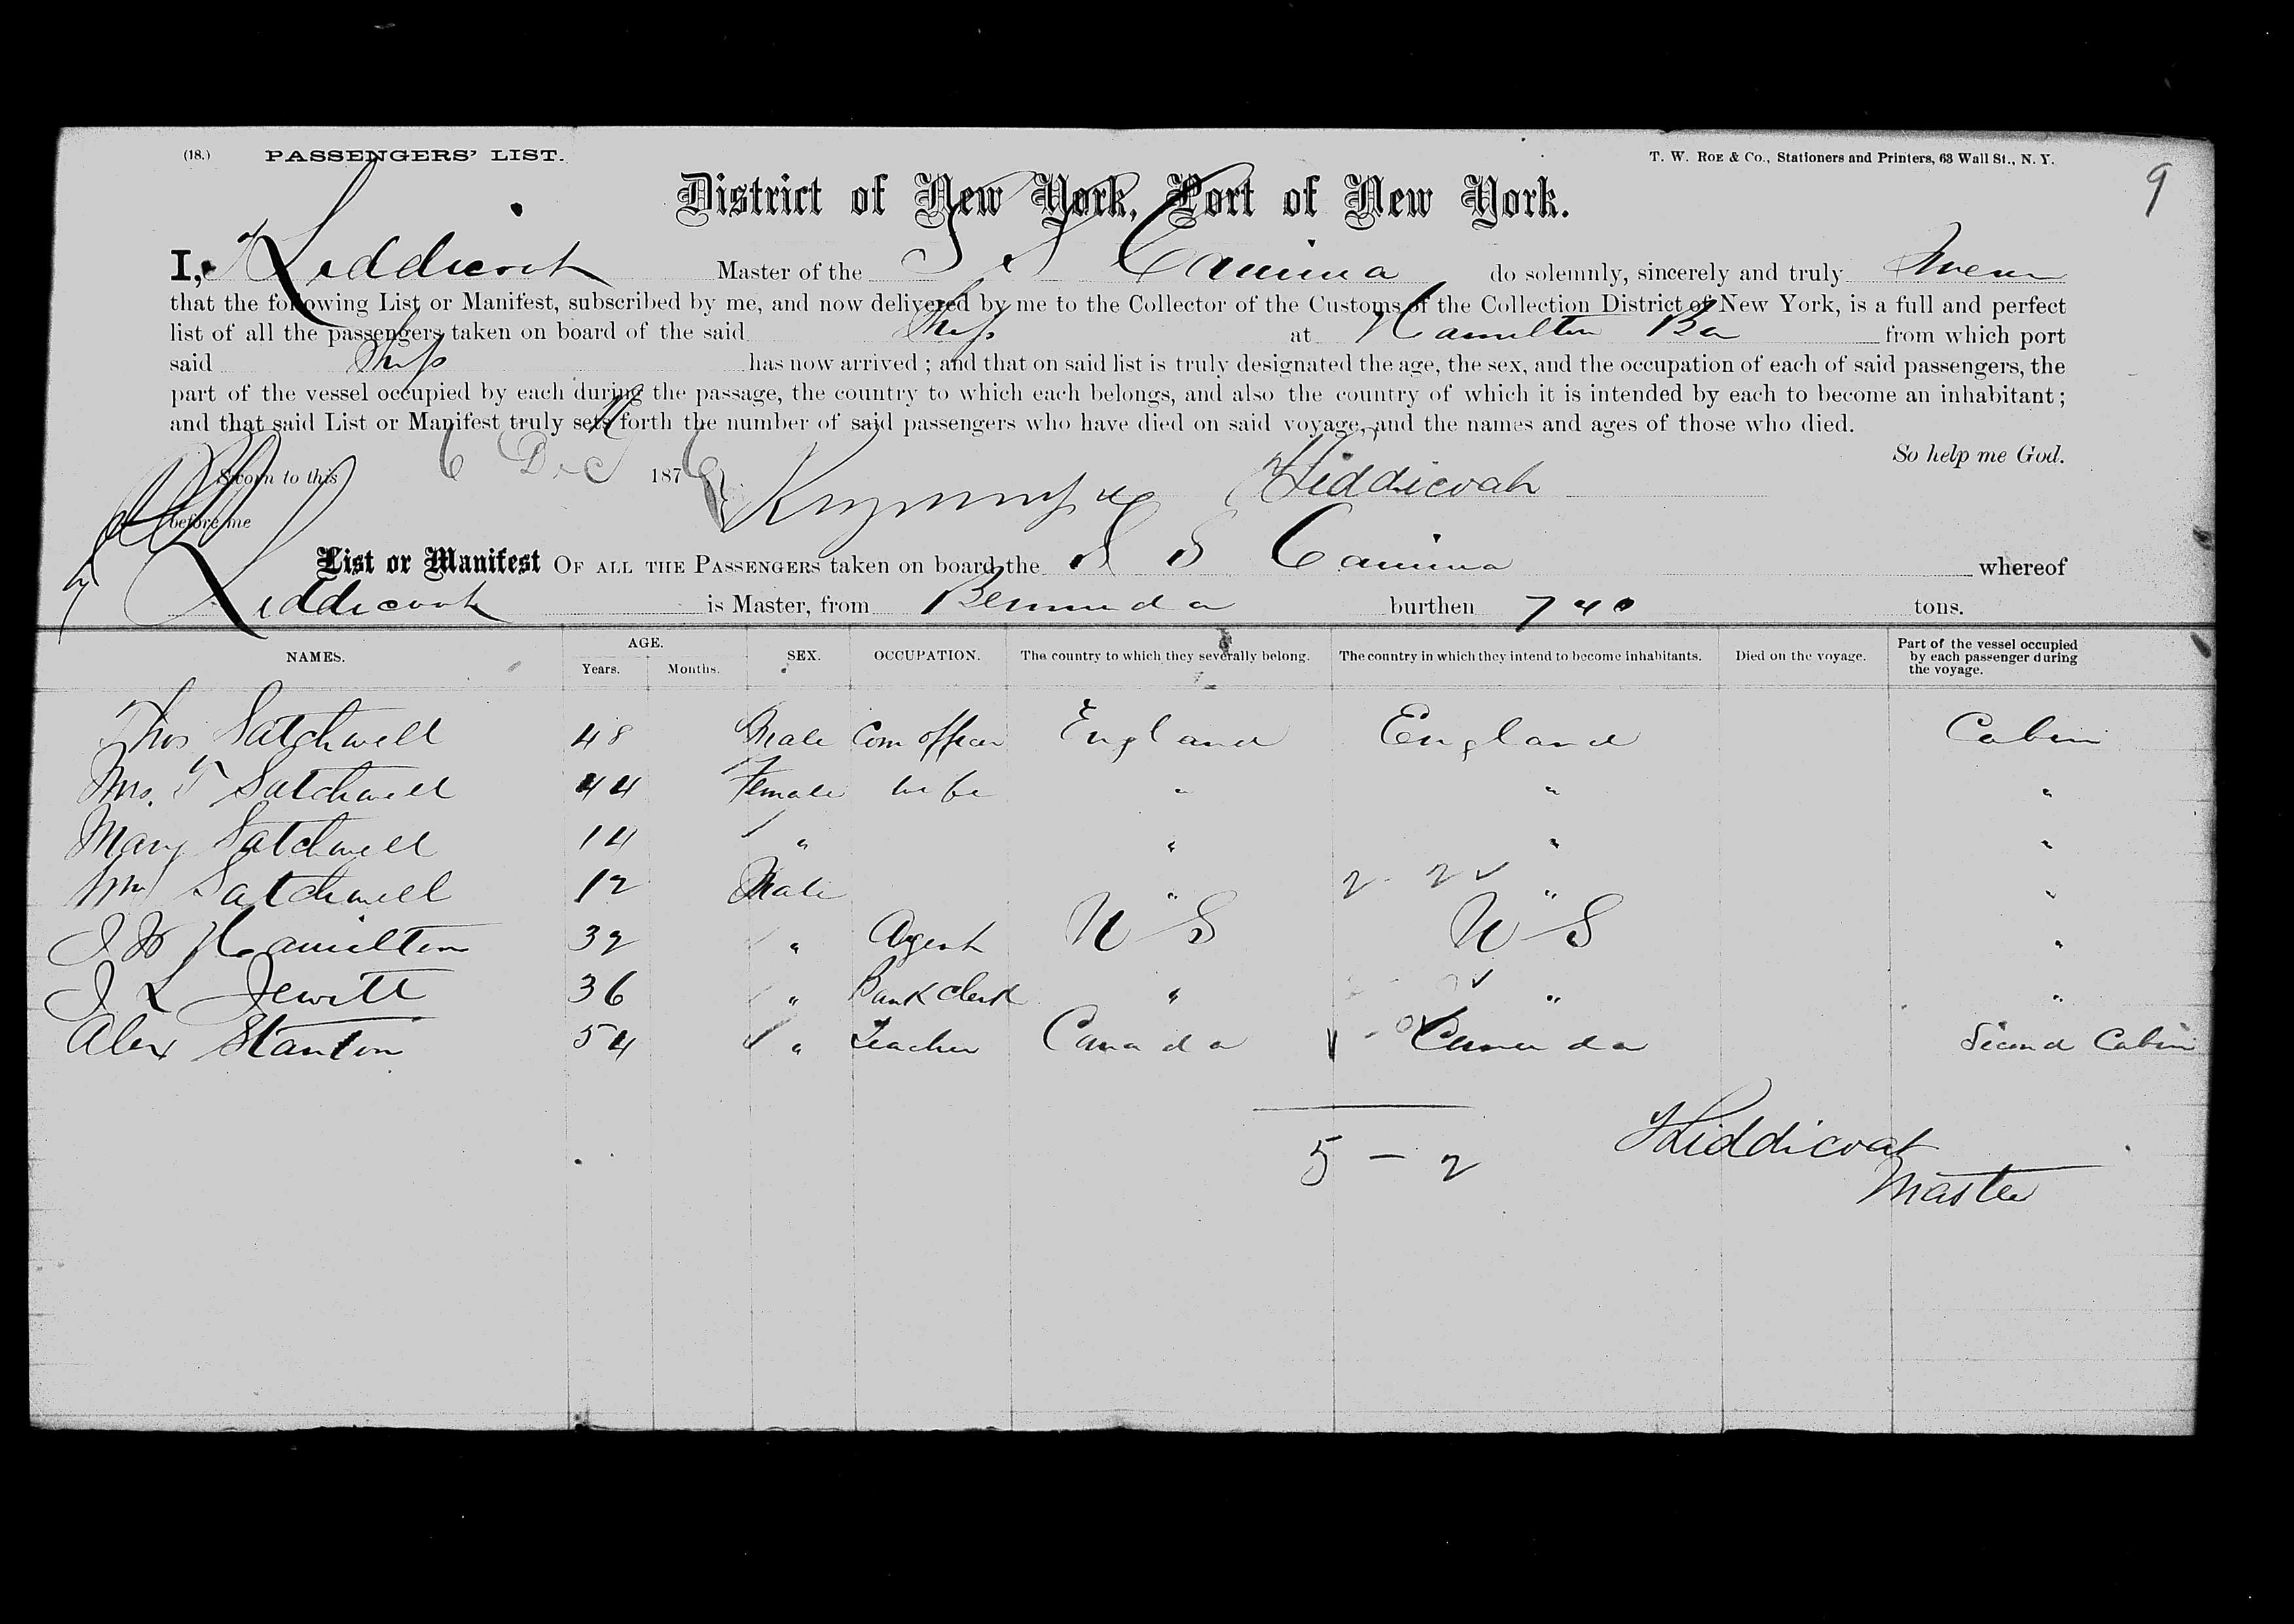 (18.) PASSENGERS' LIST. T. W. ROE & CO., Stationers and Printers, 63 Wall St., N. Y.
9
District of New York, Port of New York.
I, Liddicoat Master of the S S Canima do solemnly, sincerely and truly Swear
that the following List or Manifest, subscribed by me, and now delivered by me to the Collector of the Customs of the Collection District of New York, is a full and perfect
list of all the passengers taken on board of the said Ship at Hamilton Ber from which port
said Ship has now arrived ; and that on said list is truly designated the age, the sex, and the occupation of each of said passengers, the
part of the vessel occupied by each during the passage, the country to which each belongs, and also the country of which it is intended by each to become an inhabitant ;
and that said List or Manifest truly sets forth the number of said passengers who have died on said voyage, and the names and ages of those who died.
So help me God.
Sworn to this 6 Dec 1876 Liddicoat
before me
List or Manifest OF ALL THE PASSENGERS taken on board the S S Canima whereof
Liddicoat is Master, from Bermuda burthen 740 tons.
NAMES. AGE. Years. Months. SEX. OCCUPATION. The country to which they severally belong. The country in which they intend to become inhabitants. Died on the voyage. Part of the vessel occupied by each passenger during the voyage.
Thos Satchwell 48 Male Com officer England England Cabin
Mrs. T Satchwell 44 Female wife " " "
Mary Satchwell 14 " " " "
Wm Satchwell 12 Male " 2 - 2 ✓ " "
J W Hamilton 32 " Agent U S U S "
J L Jewitt 36 " Bank Clerk " " "
Alex Stanton 54 " Teacher Canada Canada Second Cabin
5 - 2
Liddicoat
Master